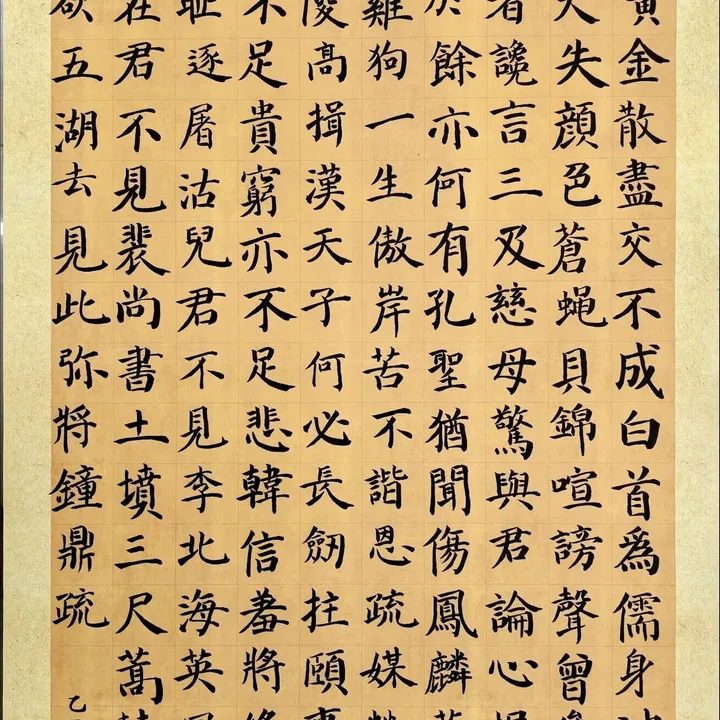 黄金散盡交不成白首爲儒身
失顔色蒼蝇貝錦喧謗聲曾
者讒言三及慈母驚與君論心
於餘亦何有孔聖猶聞傷鳳麟
雞狗一生傲岸苦不諧恩疏媒
陵高揖漢天子何必長劒拄頤事
不足貴窮亦不足悲韓信羞將絳
耻逐屠沽兒君不見李北海英
在君不見裴尚書土墳三尺蒿
欲五湖去見此弥將鐘鼎疏
乙